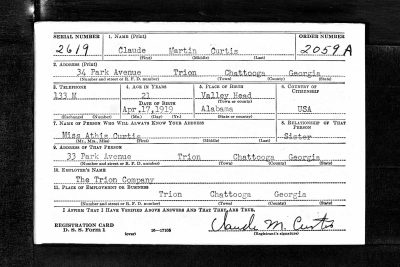 SERIAL NUMBER 1. NAME (Print) ORDER NUMBER
2619 Claude Martin Curtis 2059A
(First) (Middle) (Last)
2. ADDRESS (Print)
34 Park Avenue Trion Chattooga Georgia
(Number and street or R. F. D. number) (Town) (County) (State)
3. TELEPHONE 4. AGE IN YEARS 5. PLACE OF BIRTH 6. COUNTRY OF CITIZENSHIP
133 M 21 Valley Head
DATE OF BIRTH (Town or county)
Apr. 17, 1919 Alabama USA
(Exchange) (Number) (Mo.) (Day) (Yr.) (State or country)
7. NAME OF PERSON WHO WILL ALWAYS KNOW YOUR ADDRESS 8. RELATIONSHIP OF THAT PERSON
Miss Athis Curtis Sister
(Mr., Mrs., Miss) (First) (Middle) (Last)
9. ADDRESS OF THAT PERSON
33 Park Avenue Trion Chattooga Georgia
(Number and street or R. F. D. number) (Town) (County) (State)
10. EMPLOYER'S NAME
The Trion Company
11. PLACE OF EMPLOYMENT OR BUSINESS
Trion Chattooga Georgia
(Number and street or R. F. D. number) (Town) (County) (State)
I AFFIRM THAT I HAVE VERIFIED ABOVE ANSWERS AND THAT THEY ARE TRUE.
REGISTRATION CARD Claude M. Curtis
D. S. S. Form 1 (over) 16-17105 (Registrant's signature)